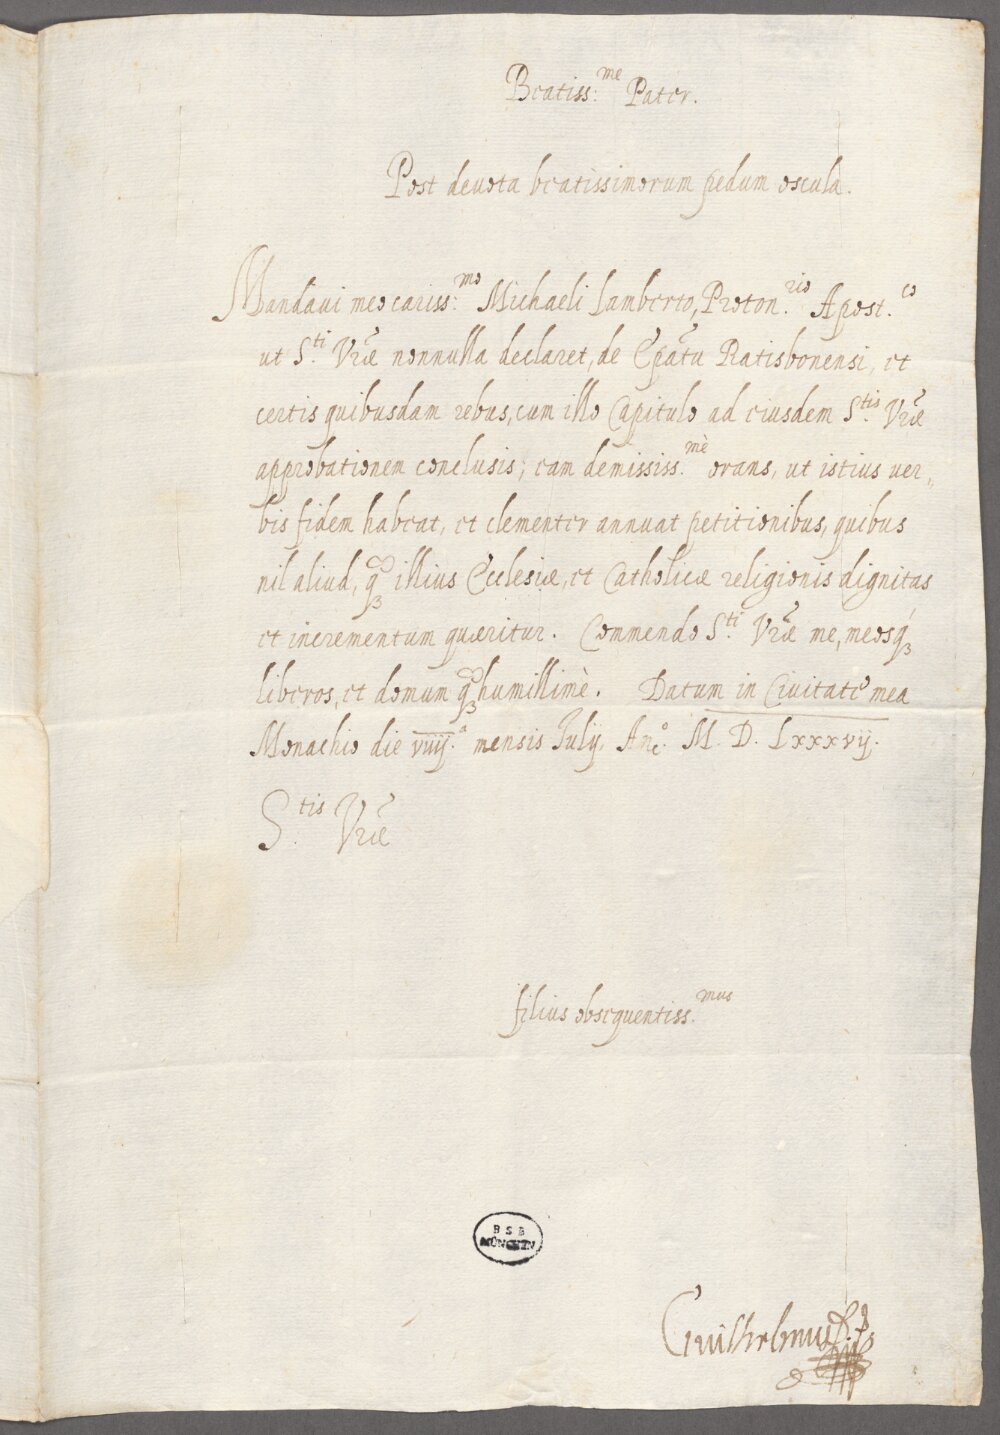 Beatiss:me Pater.
Post deuota beatissimorum pedum oscula.
Mandaui meo cariss:mo Michaeli Lamberto, Proton.rio Apost.co
ut S.ti Vr̃æ nonnulla declaret, de Ep̃atu Ratisbonensi, et
certis quibusdam rebus, cum illo Capitulo ad eiusdem S.tis Vr̃æ
approbationem conclusis; eam demississ.mè orans, ut istius uer„
bis fidem habeat, et clementer annuat petitionibus, quibus
nil aliud, q̃ꝫ illius Ecclesiæ, et Catholicæ religionis dignitas
et incrementum quæritur. Commendo S.ti Vr̃æ me, meosqꝫ
liberos, et domum q̃ꝫ humillimè. Datum in Ciuitate mea
Monachio die viiij.a mensis Julij. Anº. M. D. Lxxxvij.
S.tis Vr̃æ
filius obsequentiss.mus
BSB
MÜNCHEN
Guilhelmus